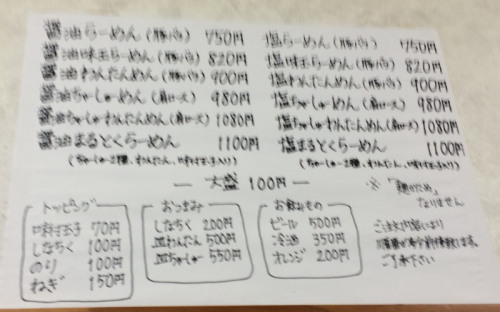 醤油らーめん(豚バラ) 750円
醤油味玉らーめん(豚バラ) 820円
醤油わんたんめん(豚バラ) 900円
醤油ちゃーしゅーめん(肩ロース) 980円
醤油ちゃーしゅーわんたんめん(肩ロース) 1080円
醤油まるとくらーめん 1100円
(ちゃーしゅー2種、わんたん、味付玉子入り)
塩らーめん(豚バラ) 750円
塩味玉らーめん(豚バラ) 820円
塩わんたんめん(豚バラ) 900円
塩ちゃーしゅーめん(肩ロース) 980円
塩ちゃーしゅーわんたんめん(肩ロース) 1080円
塩まるとくらーめん 1100円
(ちゃーしゅー2種、わんたん、味付玉子入り)
― 大盛 100円 ―
トッピング
味付玉子 70円
しなちく 100円
のり 100円
ねぎ 150円
おつまみ
しなちく 200円
皿わんたん 500円
皿ちゃーしゅー 550円
お飲みもの
ビール 500円
冷酒 350円
オレンジ 200円
※「麺かため」
なりません
ご注文が
ご了承下さい